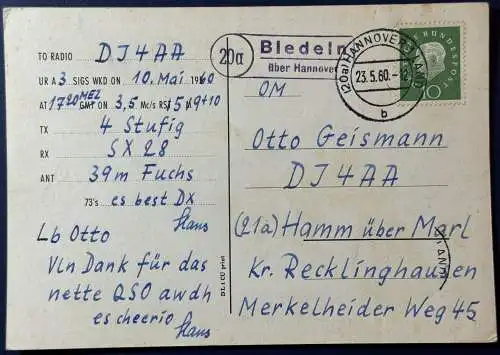 TO RADIO DJ4AA
UR A 3 SIGS WKD ON 10. Mai 1960
AT 1720 MEZ GMT ON 3,5 Mc/s RST 5 9+10
TX 4 Stufig
RX SX 28
ANT 39m Fuchs
73's es best DX
Hans
Lb Otto
Vln Dank für das
nette QSO awdh
es cheerio Hans
DL1CU print
20a
Bledeln
über Hannover
(20a) HANNOVER LAND
23.5.60.-12
b
BUNDESPOST
10
OM
Otto Geismann
DJ4AA
(21a) Hamm über Marl
Kr. Recklinghausen
Merkelheider Weg 45